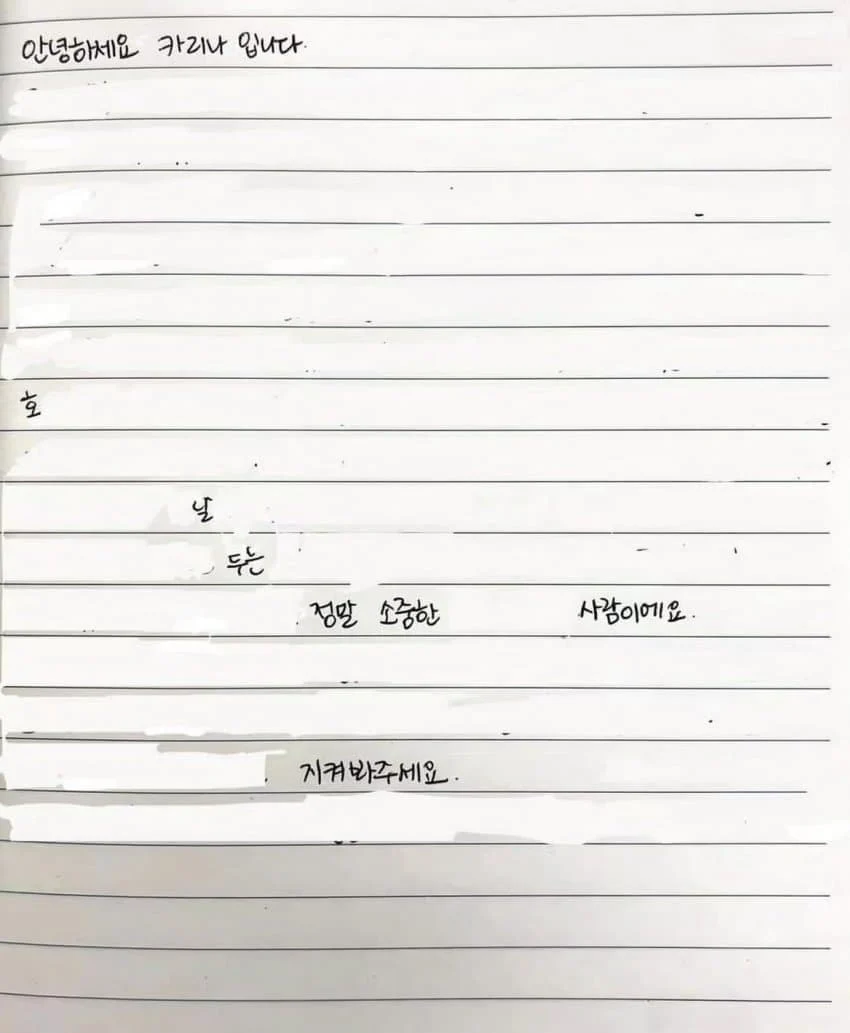 안녕하세요 카리나 입니다.
호
날
두는
정말 소중한 사람이에요.
지켜봐주세요.